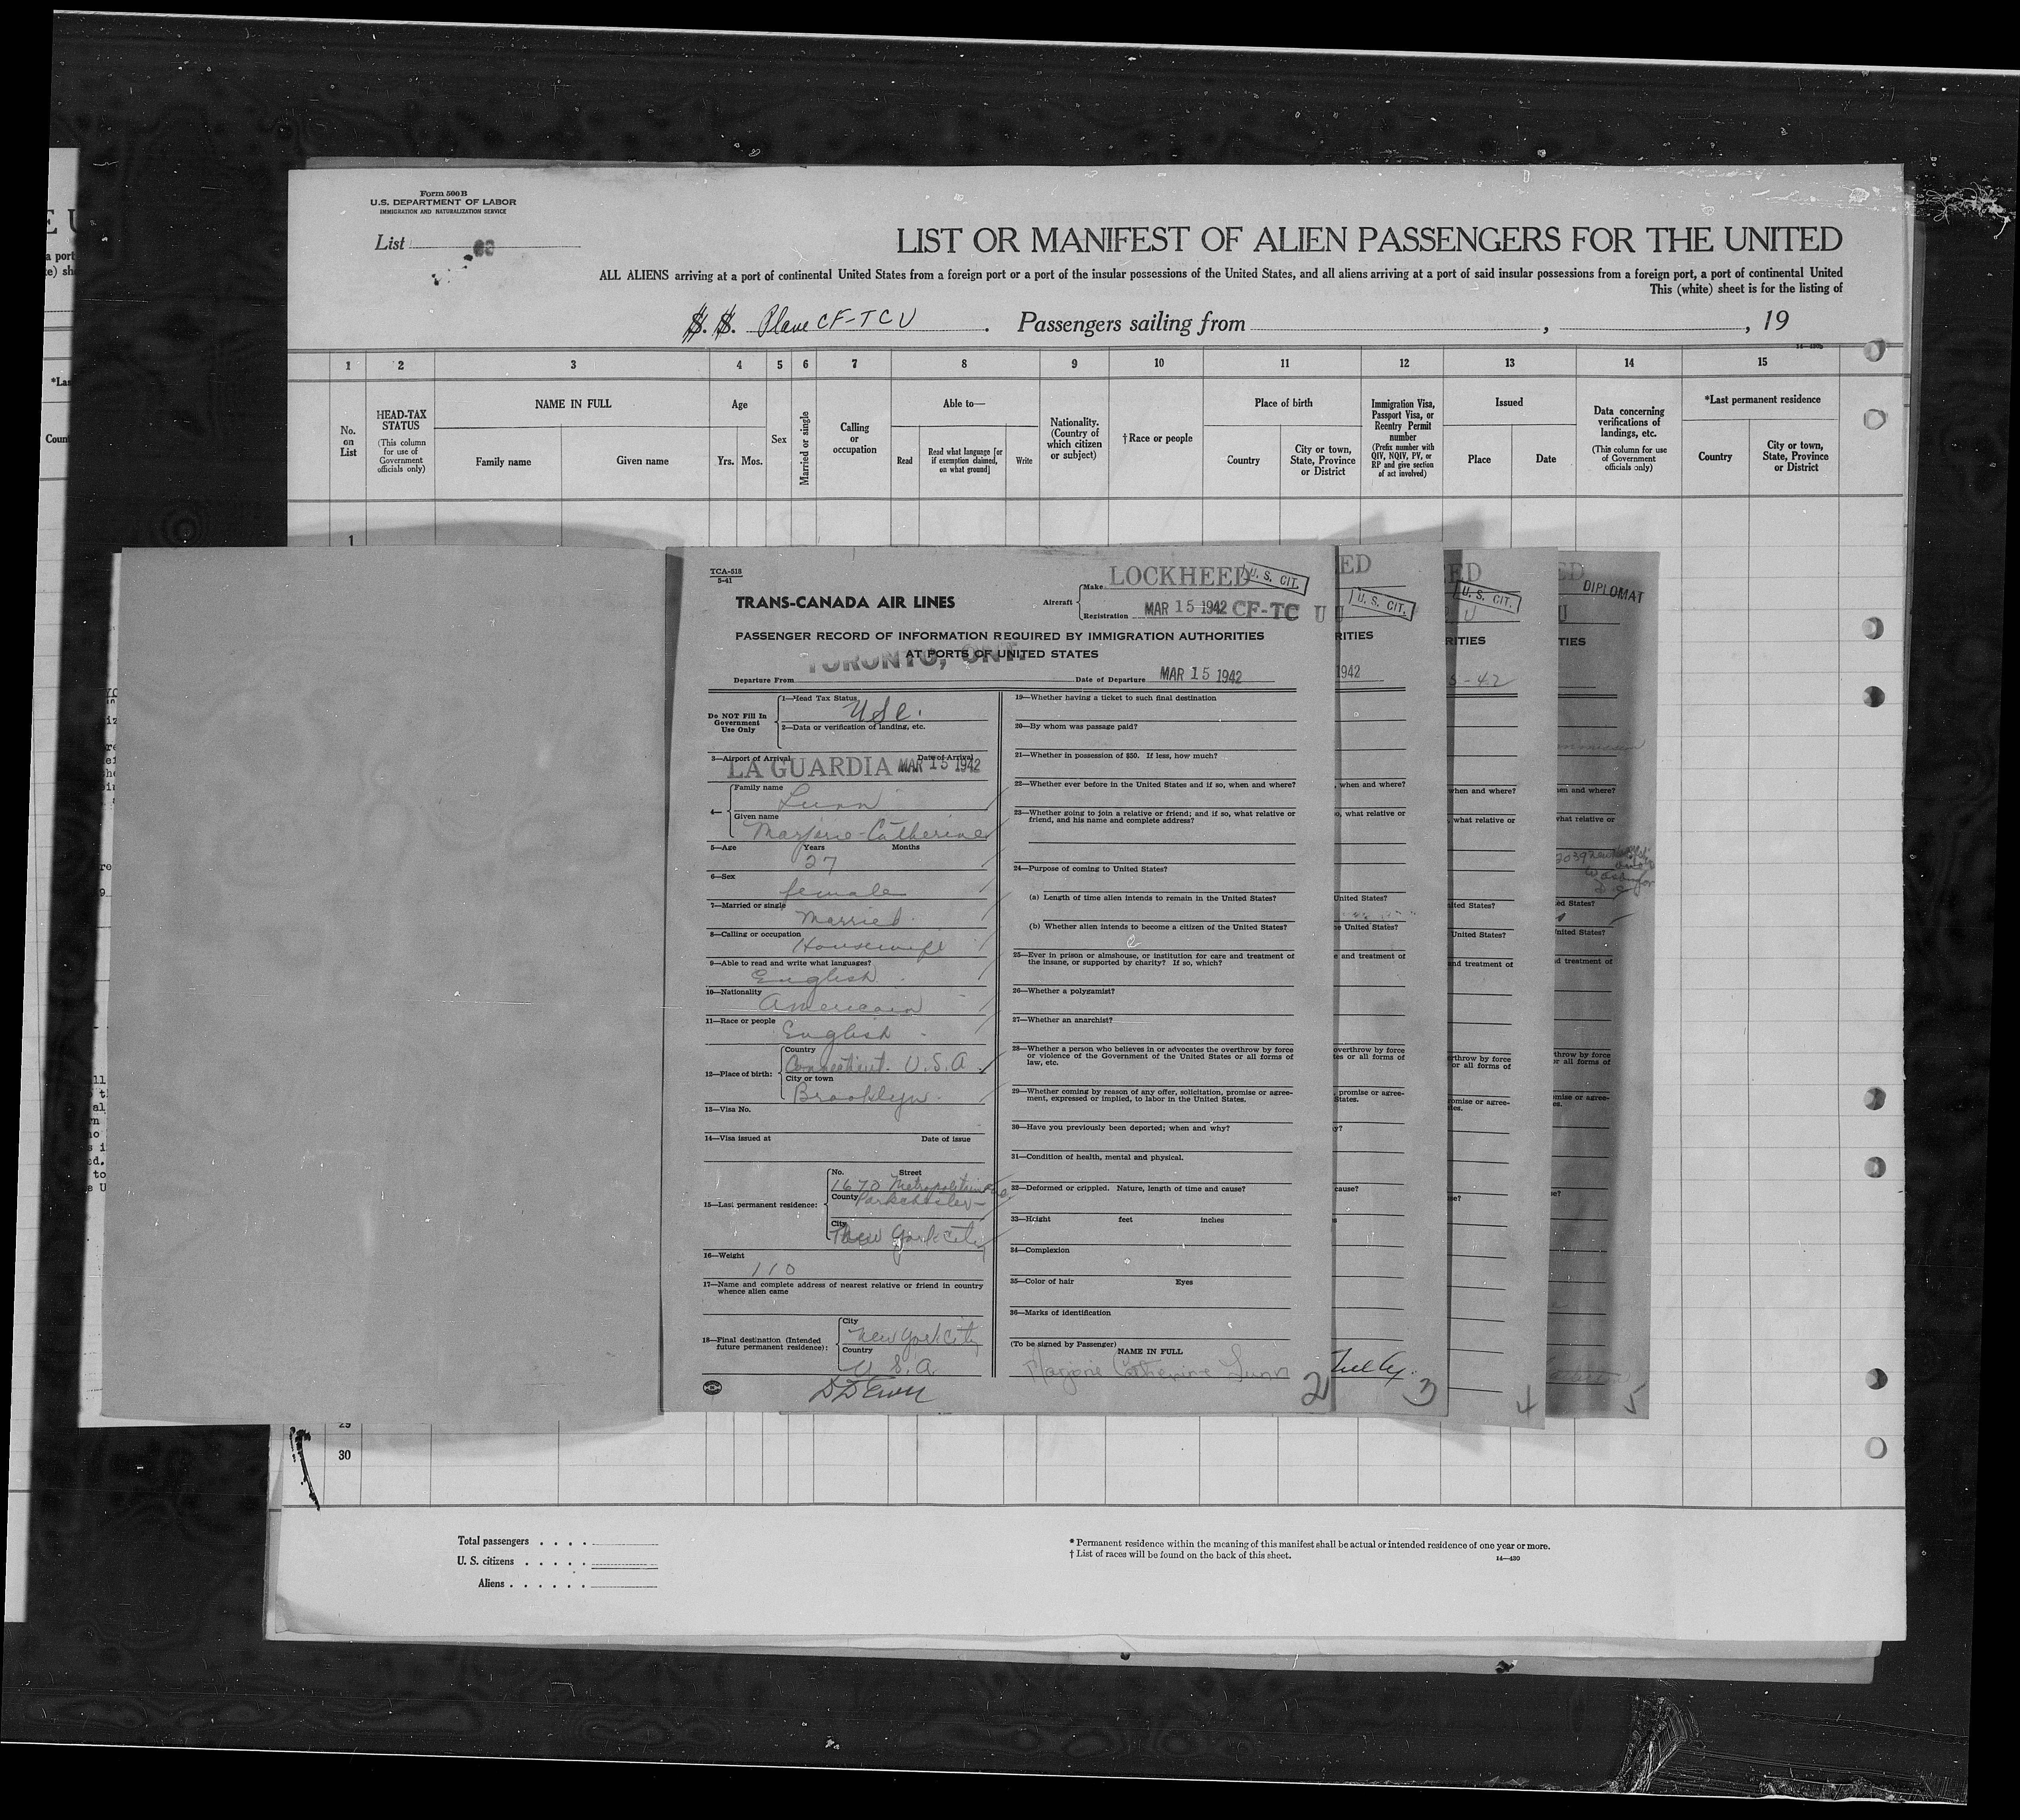 Form 500 B
U.S. DEPARTMENT OF LABOR
IMMIGRATION AND NATURALIZATION SERVICE
List
LIST OR MANIFEST OF ALIEN PASSENGERS FOR THE UNITED
ALL ALIENS arriving at a port of continental United States from a foreign port or a port of the insular possessions of the United States, and all aliens arriving at a port of said insular possessions from a foreign port, a port of continental United
This (white) sheet is for the listing of
S. S. Plane CF-TCU . Passengers sailing from , , 19
1 2 3 4 5 6 7 8 9 10 11 12 13 14 15
No. on List
HEAD-TAX STATUS
(This column for use of Government officials only)
NAME IN FULL
Family name
Given name
Age
Yrs. Mos.
Sex
Married or single
Calling or occupation
Able to—
Read
Read what language [or if exemption claimed, on what ground]
Write
Nationality. (Country of which citizen or subject)
† Race or people
Place of birth
Country
City or town, State, Province or District
Immigration Visa, Passport Visa, or Reentry Permit number
(Prefix number with QIV, NQIV, PV, or RP and give section of act involved)
Issued
Place
Date
Data concerning verifications of landings, etc.
(This column for use of Government officials only)
*Last permanent residence
Country
City or town, State, Province or District
1
TCA-518
5-41
TRANS-CANADA AIR LINES
Aircraft
Make LOCKHEED
U. S. CIT.
Registration MAR 15 1942 CF-TC U
PASSENGER RECORD OF INFORMATION REQUIRED BY IMMIGRATION AUTHORITIES
AT PORTS OF UNITED STATES
Departure From TORONTO, ONT. Date of Departure MAR 15 1942
Do NOT Fill In
Government
Use Only
1—Head Tax Status
USC.
2—Data or verification of landing, etc.
3—Airport of Arrival Date of Arrival
LA GUARDIA MAR 15 1942
4—
Family name
Lunn
Given name
Marjorie-Catherine
5—Age Years Months
27
6—Sex
female
7—Married or single
Married.
8—Calling or occupation
Housewife
9—Able to read and write what languages?
English
10—Nationality
American
11—Race or people
English
12—Place of birth:
Country
Connecticut. U.S.A.
City or town
Brooklyn.
13—Visa No.
14—Visa issued at Date of issue
15—Last permanent residence:
No. Street
1670 Metropolitan Ave.
County Parkchester
City
New York City
16—Weight
110
17—Name and complete address of nearest relative or friend in country
whence alien came
18—Final destination (Intended
future permanent residence):
City
New York City
Country
U.S.A.
19—Whether having a ticket to such final destination
20—By whom was passage paid?
21—Whether in possession of $50. If less, how much?
22—Whether ever before in the United States and if so, when and where?
23—Whether going to join a relative or friend; and if so, what relative or
friend, and his name and complete address?
24—Purpose of coming to United States?
(a) Length of time alien intends to remain in the United States?
(b) Whether alien intends to become a citizen of the United States?
25—Ever in prison or almshouse, or institution for care and treatment of
the insane, or supported by charity? If so, which?
26—Whether a polygamist?
27—Whether an anarchist?
28—Whether a person who believes in or advocates the overthrow by force
or violence of the Government of the United States or all forms of
law, etc.
29—Whether coming by reason of any offer, solicitation, promise or agree-
ment, expressed or implied, to labor in the United States.
30—Have you previously been deported; when and why?
31—Condition of health, mental and physical.
32—Deformed or crippled. Nature, length of time and cause?
33—Height feet inches
34—Complexion
35—Color of hair Eyes
36—Marks of identification
(To be signed by Passenger)
NAME IN FULL
Marjorie Catherine Lunn
2
ED
U. S. CIT.
U
RITIES
1942
3
U. S. CIT.
U
RITIES
4
DIPLOMAT
U
TIES
5
29
30
Total passengers
U. S. citizens
Aliens
* Permanent residence within the meaning of this manifest shall be actual or intended residence of one year or more.
† List of races will be found on the back of this sheet.
14—430